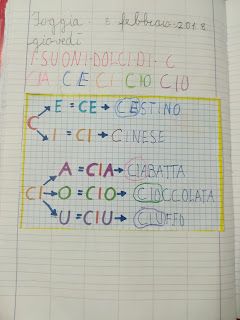 Foggia 8 febbraio 2018
giovedì
I SUONI DOLCI DI C
CIA CE CI CIO CIU
C E = CE → CESTINO
I = CI → CINESE
CI A = CIA → CIABATTA
O = CIO → CIOCCOLATA
U = CIU → CIUFFO